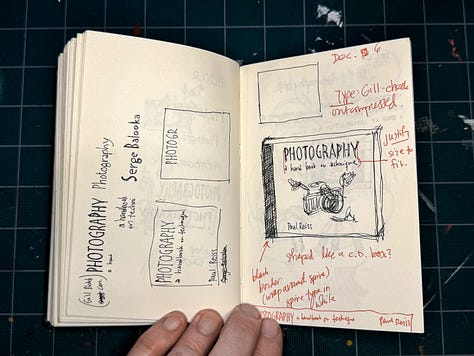 PHOTOGRAPHY
(Gill
PHOTOGRAPHY
a hand
Photography
a handbook
on techni
Serge Balooka
PHOTOGR
PHOTOGRAPHY
a handbook on technique
Paul Reiss
Serge
DOC. 6
Type: Gill-
justify
size to
fit.
PHOTOGRAPHY
a hand book on technique
Paul Reiss
shaped like a C.D. box?
black
border
(wrap around spine)
spine type in
white
PHOTOGRAPHY a handbook on technique Paul Reiss